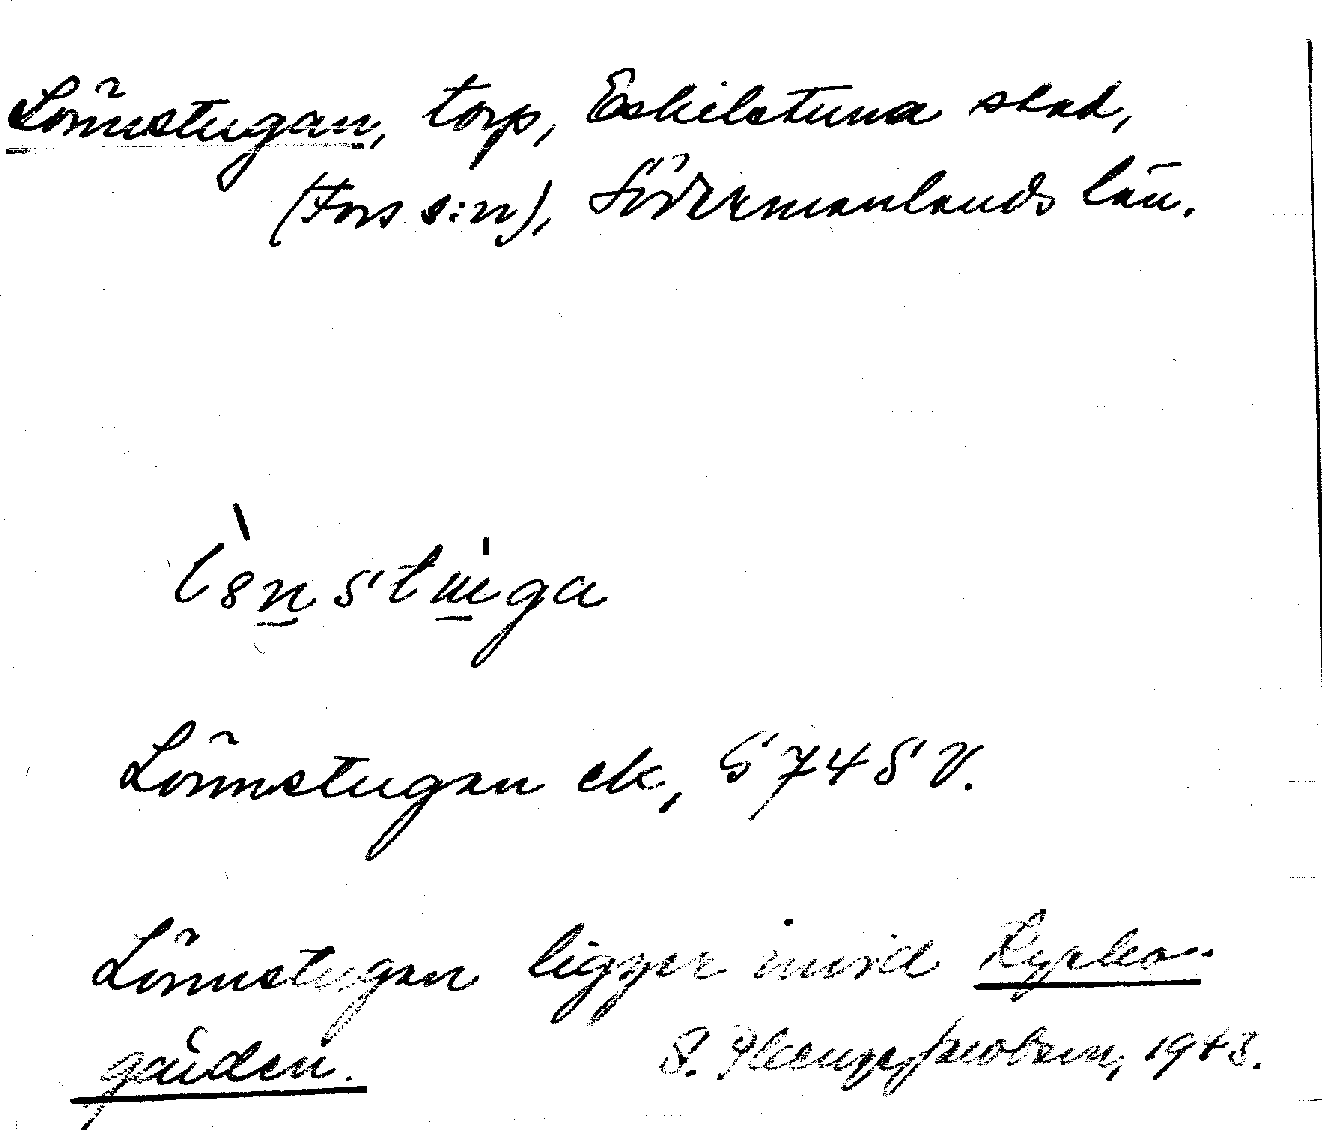 Lönnstugan, torp, Eskilstuna stad,
(Fors s:n), Södermanlands län.
Lönnstugan ek, 5745 V.
Lönnstugan ligger invid Kyrko-
gården. S. 1943.